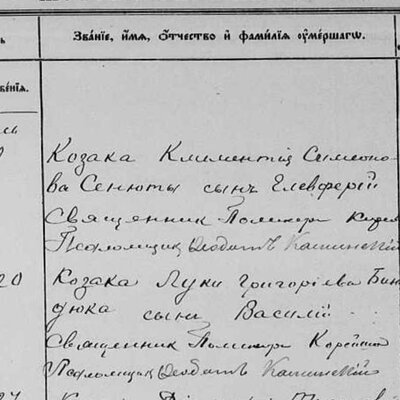 Званіе, имя, отчество и фамилія умершаго.
Козака Климентія Симеоно-
ва Сенюты сынъ Елевферій
Священник Поликарп
Псаломщик Ѳеодотъ Каминскій
20
Козака Луки Григоріева Бин-
дюка сынъ Василій
Священник Поликарп Корейша
Псаломщик Ѳеодотъ Каминскій